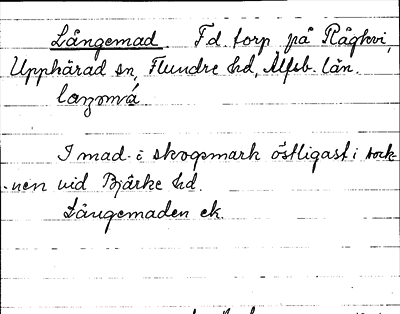 Långemad. F.d. torp på Rågtvi,
Upphärad sn, Flundre hd, Älfsb. län.
I mad i skogsmark östligast i sock-
nen vid Bjärke hd.
Långemaden ek.